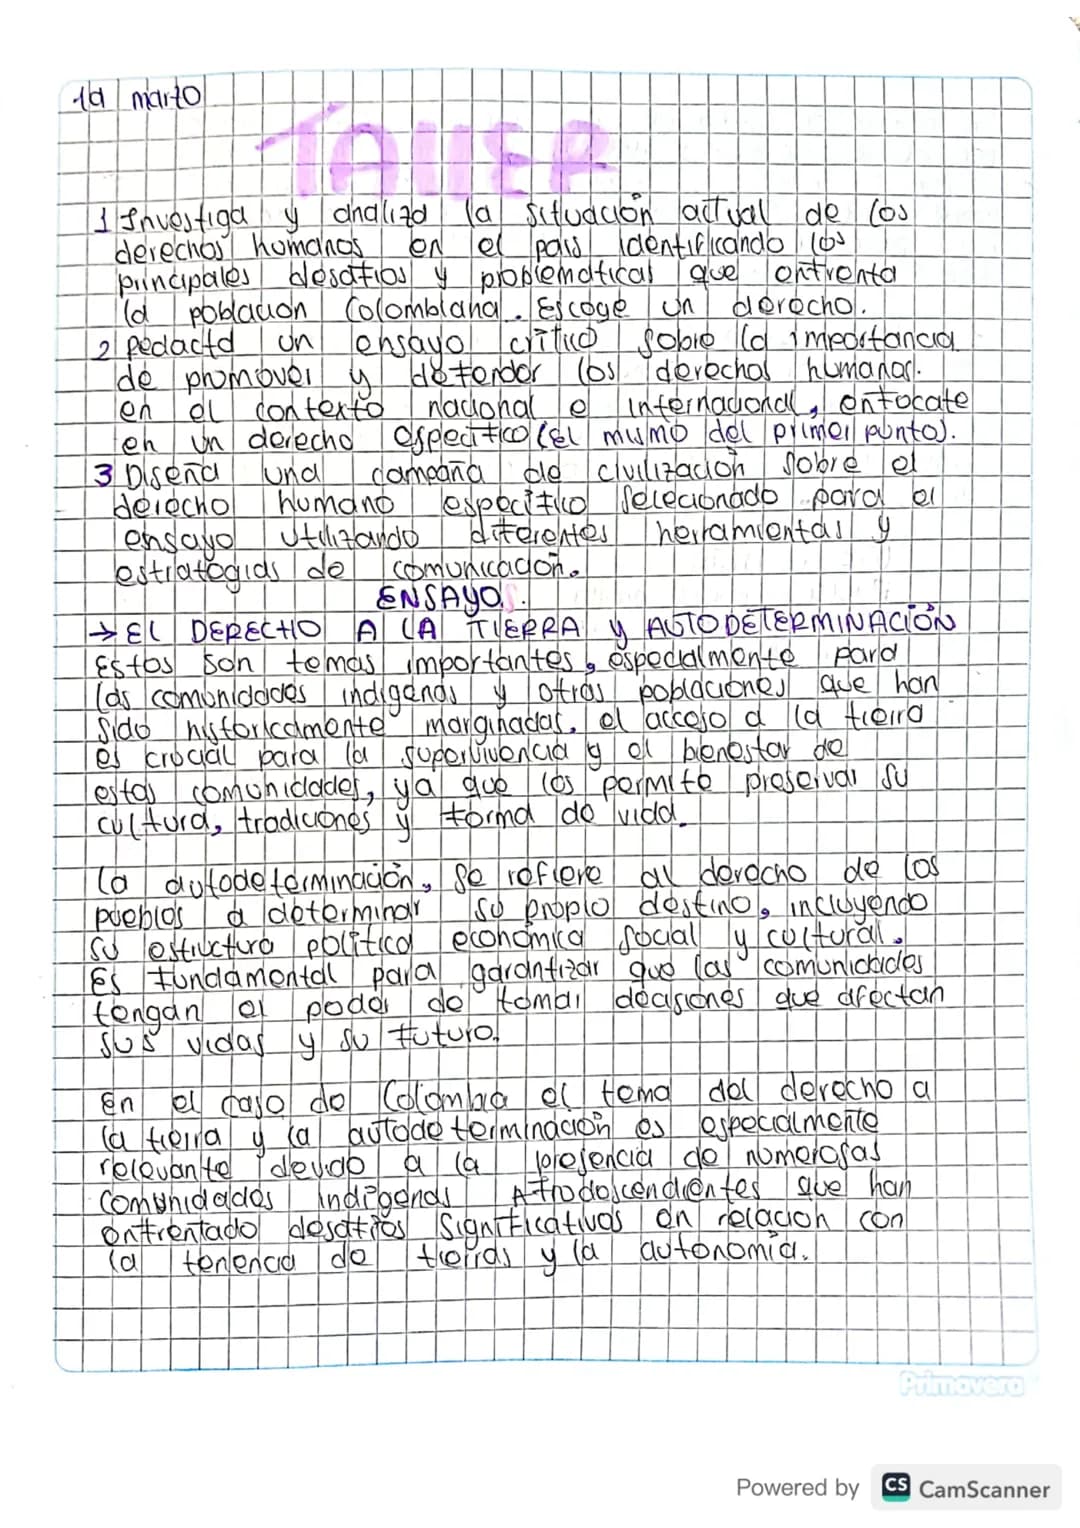 19 marzo
TALLER
1 Investiga y analiza la situación actual de los
derechos humanos en el pais identificando los
principales desafios y problematicas que enfrenta
la poblacion Colombiana. Escoge un derecho.
2 Redacta un ensayo critico sobre la importancia
de promover y defender los derechos humanos.
en el contexto nacional e internacional, enfocate
en un derecho especifico (El mismo del primer punto).
3 Diseña una campaña de civilización sobre el
derecho humano especifico selecionado para el
ensayo utilizando diferentes herramientas y
estrategias de comunicación.
ENSAYO.
→ EL DERECHO A LA TIERRA y AUTODETERMINACIÓN
Estos son temas importantes, especialmente para
las comunidades indigenas y otras poblaciones que han
sido historicamente marginadas. el acceso a la tierra
es crucial para la supervivencia y el bienestar de
estas comunidades, ya que los permite preservar su
cultura, tradiciones y forma de vida.
La autodeterminación, se refiere al derecho de los
pueblos a determinar su propio destino, incluyendo
su estructura politica economica social y cultural.
Es fundamental para garantizar que las comunidades
tengan el poder de tomar decisiones que afectan
sus vidas y su futuro.
En el caso de Colombia el tema del derecho a
la tierra y la autodeterminación es especialmente
relevante devido a la presencia de numerosas
comunidades indigenas Afrodescendientes que han
enfrentado desafios significativos en relacion con
la tenencia de tierras y la autonomia.
Primavera
Powered by CS CamScanner